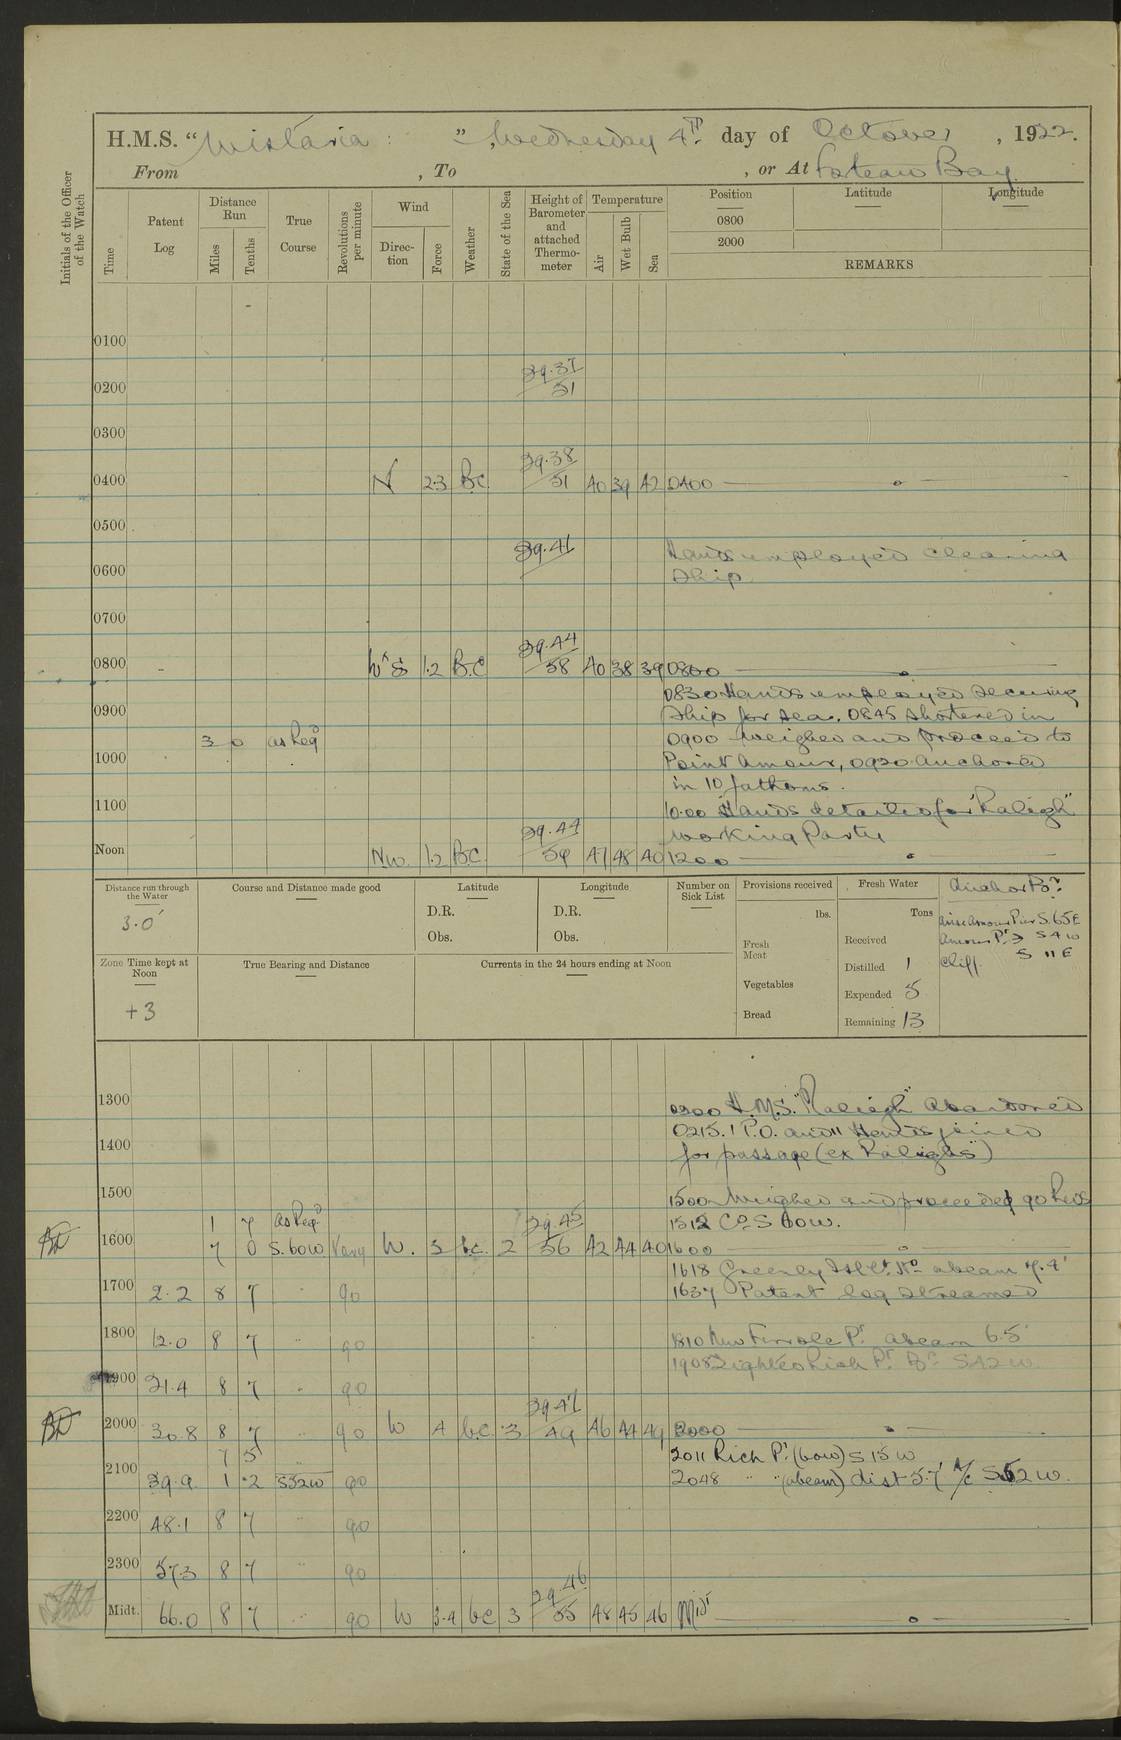 H.M.S. "Wistaria : ", Wednesday 4th day of October, 1922.
From , To , or At Forteau Bay
Initials of the Officer of the Watch
Time
Patent Log
Distance Run
Miles
Tenths
True Course
Revolutions per minute
Wind
Direc-tion
Force
Weather
State of the Sea
Height of Barometer and attached Thermo-meter
Temperature
Air
Wet Bulb
Sea
Position
Latitude
Longitude
0800
2000
REMARKS
0100
29.37
0200 51
0300
29.38
0400 N 2.3 B.C. 51 40 39 42 0400
0500
29.41 Hands employed cleaning
0600 Ship
0700
29.44
0800 1.2 B.C 58 40 38 39 0800
0830 Hands employed securing
0900 Ship for sea. 0845 Shortened in
3 0 as Req 0900 Weighed and proceeded to
1000 Point Amour, 0920 Anchored
in 10 fathoms.
1100 10.00 Hands detailed for "Raleigh"
29.44 working Party
Noon NW. 1.2 B.C. 59 47 48 40 1200
Distance run through the Water
3.0'
Course and Distance made good
Latitude
D.R.
Obs.
Longitude
D.R.
Obs.
Number on Sick List
Provisions received
lbs.
Fresh Meat
Vegetables
Bread
Fresh Water
Tons
Received
Distilled 1
Expended 5
Remaining 13
Anchor Pos.
Amour Pier S. 65 E
Amour Pt S 4 W
Cliff S 11 E
Zone Time kept at Noon
+3
True Bearing and Distance
Currents in the 24 hours ending at Noon
1300 0200 H.M.S. "Raleigh" abandoned
0215. 1 P.O. and 11 Hands joined
1400 for passage (ex Raleighs)
1500 1500 Weighed and proceeded 90 Revs
1 7 as Req 29.45 1512 Co S 60 W.
1600 7 0 S. 60 W Vary W. 3 b.c. 2 56 42 44 40 1600
1618 Greenly Isld Lt Ho abeam 7.4'
1700 2.2 8 7 " 90 1637 Patent log streamed
1800 12.0 8 7 " 90 1810 New Ferrole Pt abeam 6.5'
1908 Sighted Rich Pt Bg S 42 W.
1900 21.4 8 7 " 90
29.47
2000 30.8 8 7 " 90 W 4 b.c. 3 49 46 44 49 2000
7 5 " 2011 Rich Pt (bow) S 15 W
2100 39.9 1 .2 S52W 90 2048 " " (abeam) dist 5.7 A/c S 52 W.
2200 48.1 8 7 90
2300 57.3 8 7 " 90
29.46
Midt. 66.0 8 7 " 90 W 3.4 bc 3 55 48 45 46 Midt